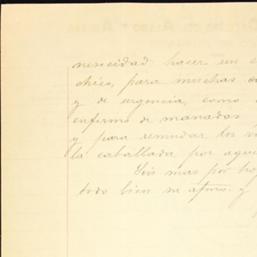 nencidad hacer un
chico, para muchas
y de urgencia, como
enfermo de manadas
y para remudar los
la caballada por aque
Sin mas por ho
todo bien su afmo. y